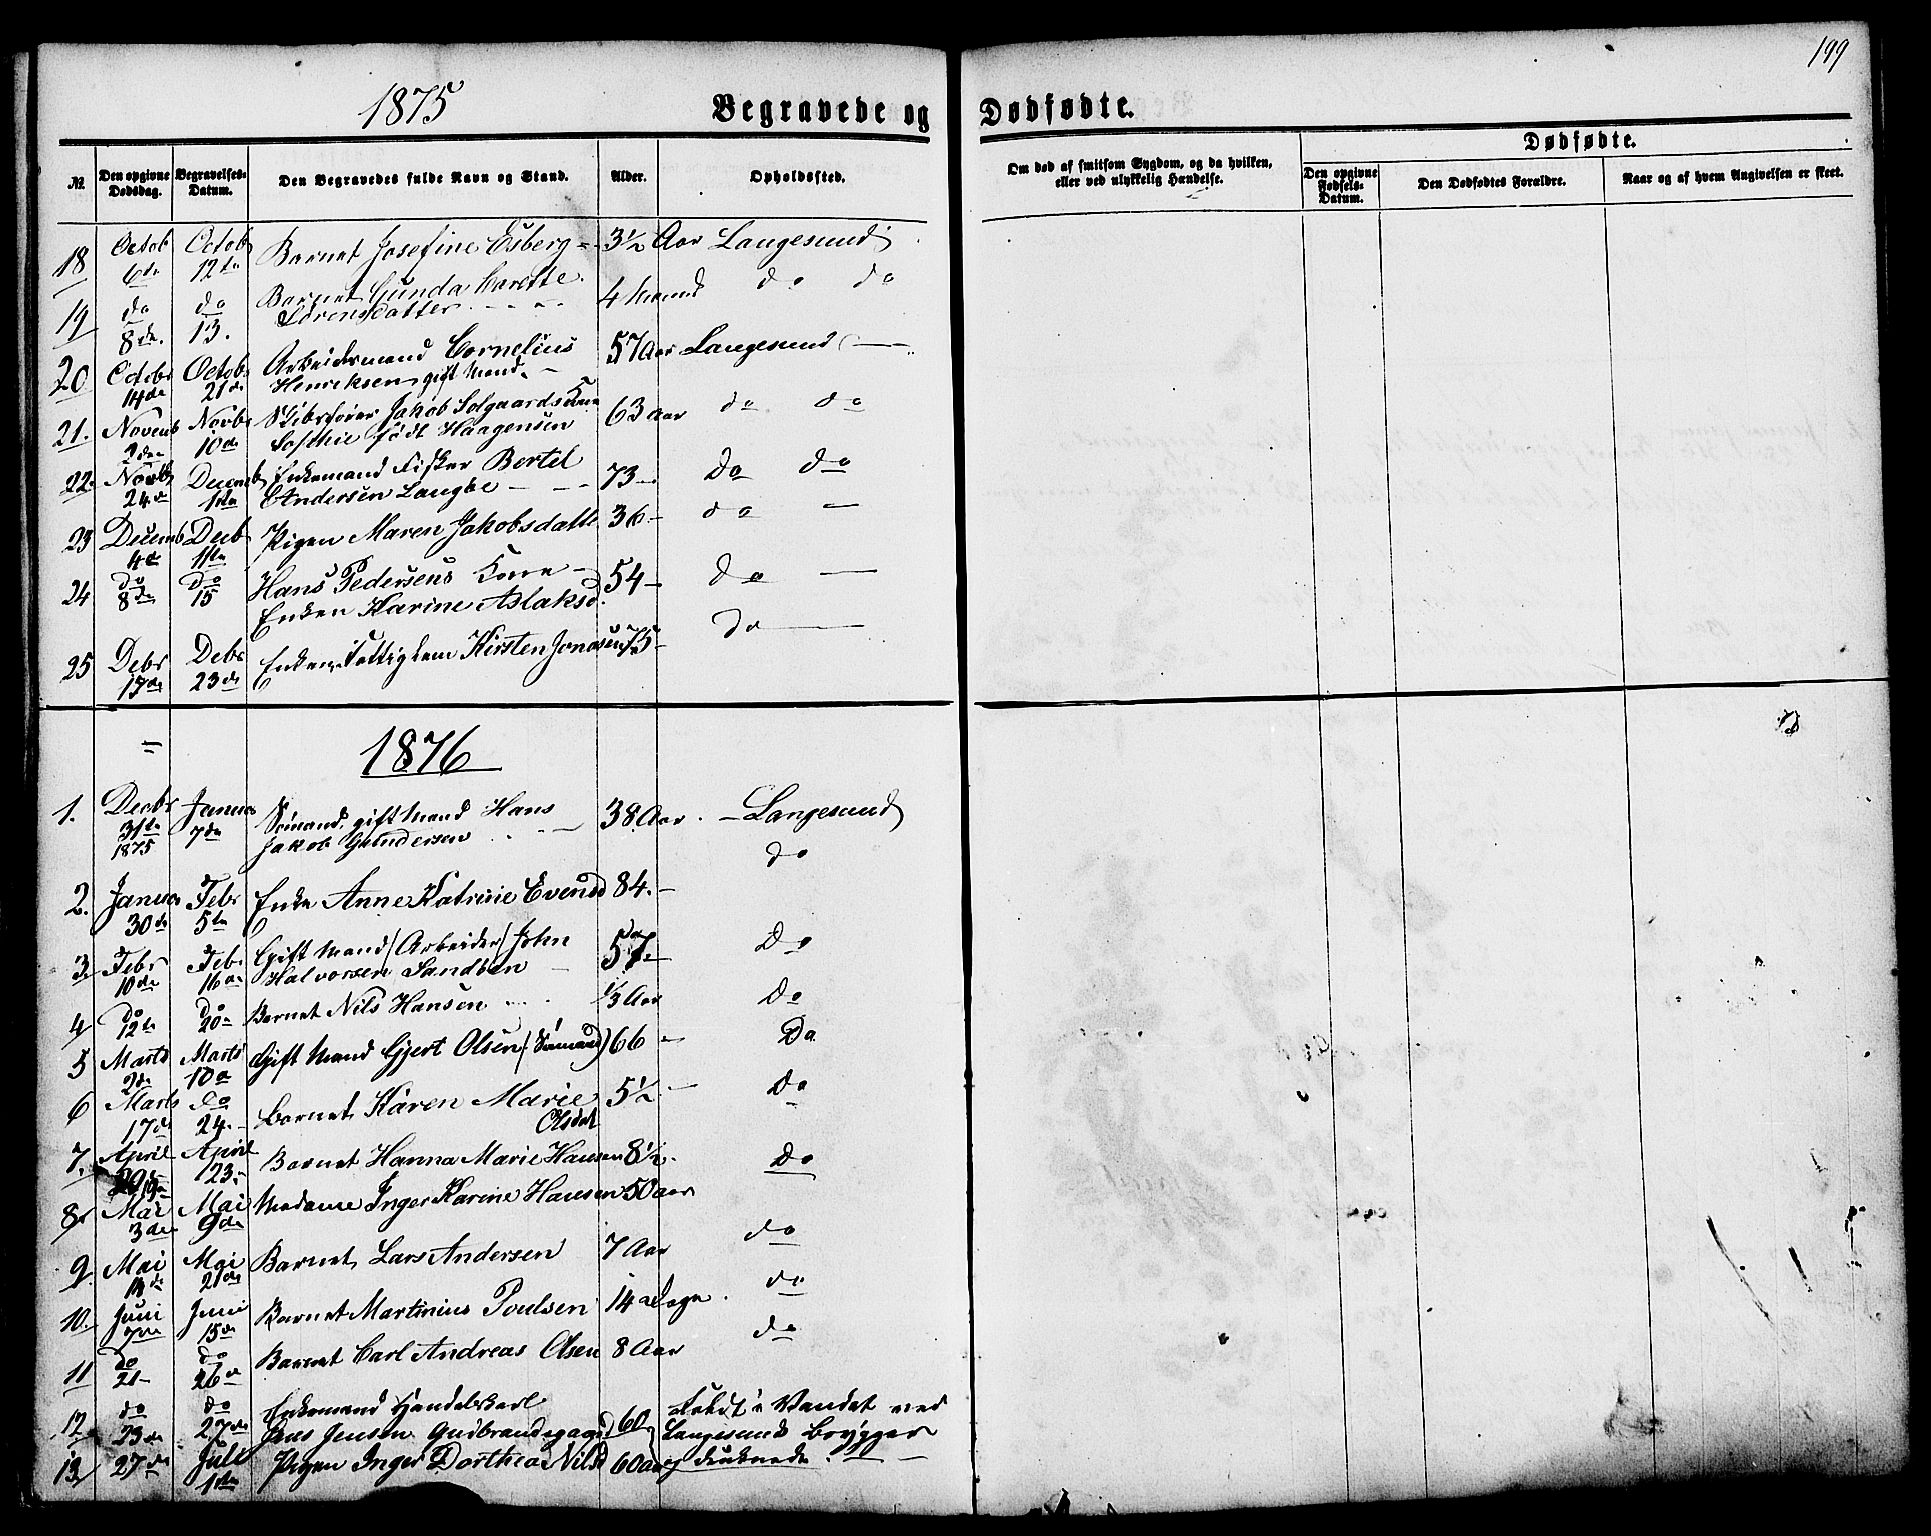 199
1875
Begravede og Dødfødte.
Dødfødte.
№. Den opgivne Dødsdag. Begravelses-Datum. Den Begravedes fulde Navn og Stand. Alder. Opholdssted.
Om død af smitsom Sygdom, og da hvilken, eller ved ulykkelig Hændelse. Den opgivne Fødsels-Datum. Den Dødfødtes Forældre. Naar og af hvem Angivelsen er skeet.
18 Octob Octob Barnet Josefine Esberg 3½ Aar Langesund
6de 12te
19 do do Barnet Gunda 4 Maaned do do
8de. 13. Sörensdatter
20 Octobr Octob Arbeidsmand Cornelius 57 Aar Langesund
14de 21de Henriksen gift Mand
21. Novemb Novbr Skibsfører Jakob Solgaards Kone 63 Aar do do
2den 10de Sofhie født Haagensen
22. Novbr Decemb Enkemand Fisker Bertel 73 do do
24de 1ste Andersen Langøe
23 Decemb Decb Pigen Maren Jakobsdatte 36 do
4de 11te
24 do do Hans Pedersens Kone 54 do
8de 15 Enken Karine Aslaksd.
25 Debr Debr Enken Fattiglem Kirsten Jonasen 75 do
17de 23de
1876
1. Decbr Janua Sömand, gift Mand Hans 38 Aar. Langesund
31te 7de Jakob Gundersen
1875
2. Janua Febr Enke Anne Katrine Evensd 84. do
30de 5te
3 Febr Febr Gift Mand (Arbeider) John 57 Do
10de 16de Halvorsen Sandöen
4 do do Barnet Nils Hansen ⅓ Aar Do
12te 20de
5 Marts Marts Gift Mand Gjert Olsen (Sömand) 66 Do
2de 10de
6 Marts do Barnet Karen Marie 5½ Do
17de 24. Olsdat
7. April April Barnet Hanna Marie Hansen 8½. Do
23.
8 Mai Mai Madame Inger Karine Hansen 50 aar
3de 9de
9. Mai Mai Barnet Lars Andersen 7 Aar do
21de
10. Juni Juni Barnet Martinius Poulsen 14 Dage. do
7de 15de
11 do do Barnet Carl Andreas Olsen 8 Aar do
21 26de
12. do do Enkemand Handelskarl Faldt i Vandet ved
23de 27de Jens Jensen Gudbrandsgaged 60 Langesund Brygger
13 27de Juli Pigen Inger Dorthea Nilsd 60 Aar og druknede.
1ste